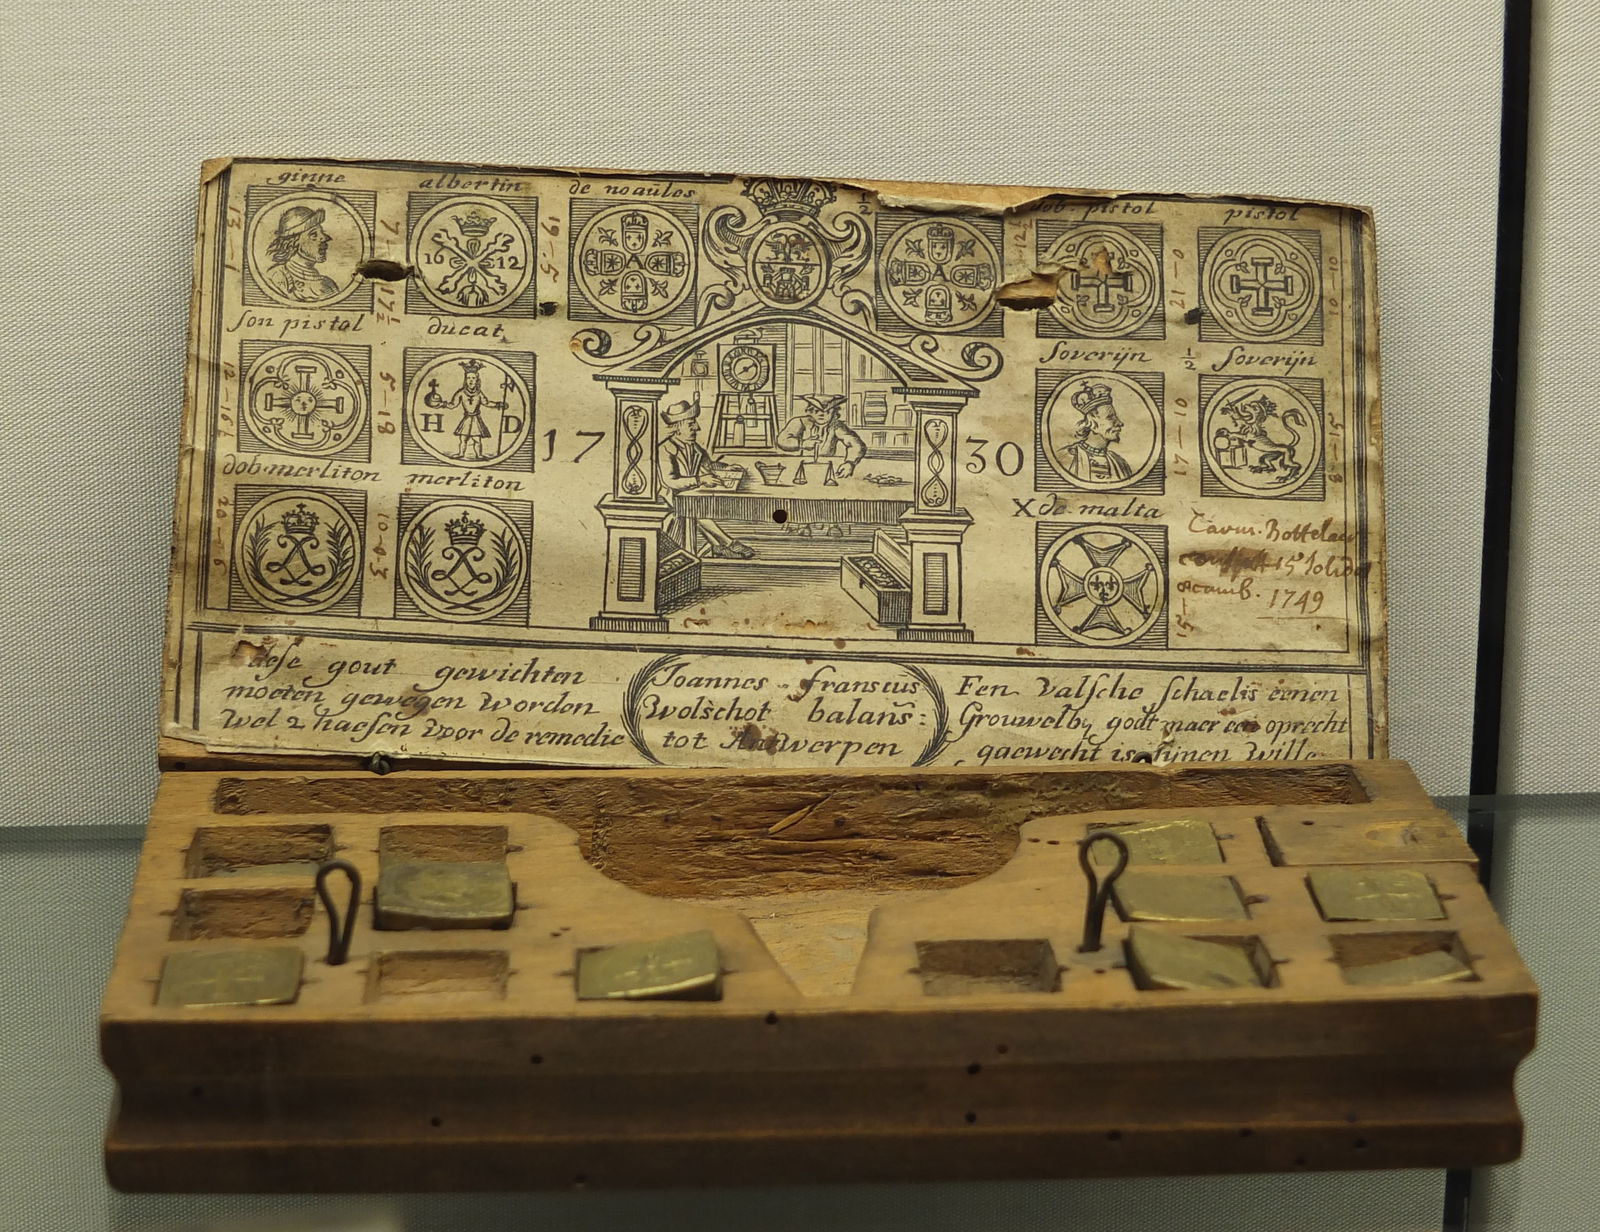 ginne
albertin
de noaüles
1/2
dob. pistol
pistol
13 - 1
7 - 1
17 1/2
16 12
19 - 5
A
A
21 - 0
10 - 10
son pistol
ducat
soverijn
1/2 soverijn
12 - 16
5 - 18
H D
17
30
17 - 10
8 - 15
dob. merliton
merliton
X de malta
20 - 6
10 - 0 - 3
15
15 Solid
1749
dese gout gewichten
moeten gewegen worden
wel 2 haesen voor de remedie
Joannes franseüs
Wolschot balans:
tot Antwerpen
Een valsche schaelis eenen
Grouwel by godt maer een oprecht
gaewecht is sijnen wille